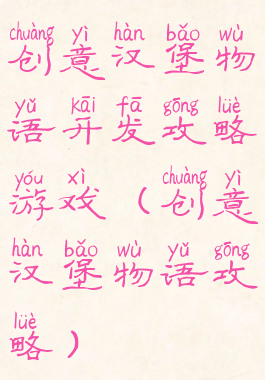 chuàng yì hàn bǎo wù
创意汉堡物
yǔ kāi fā gōng lüè
语开发攻略
yóu xì chuàng yì
游戏（创意
hàn bǎo wù yǔ gōng
汉堡物语攻
lüè
略）